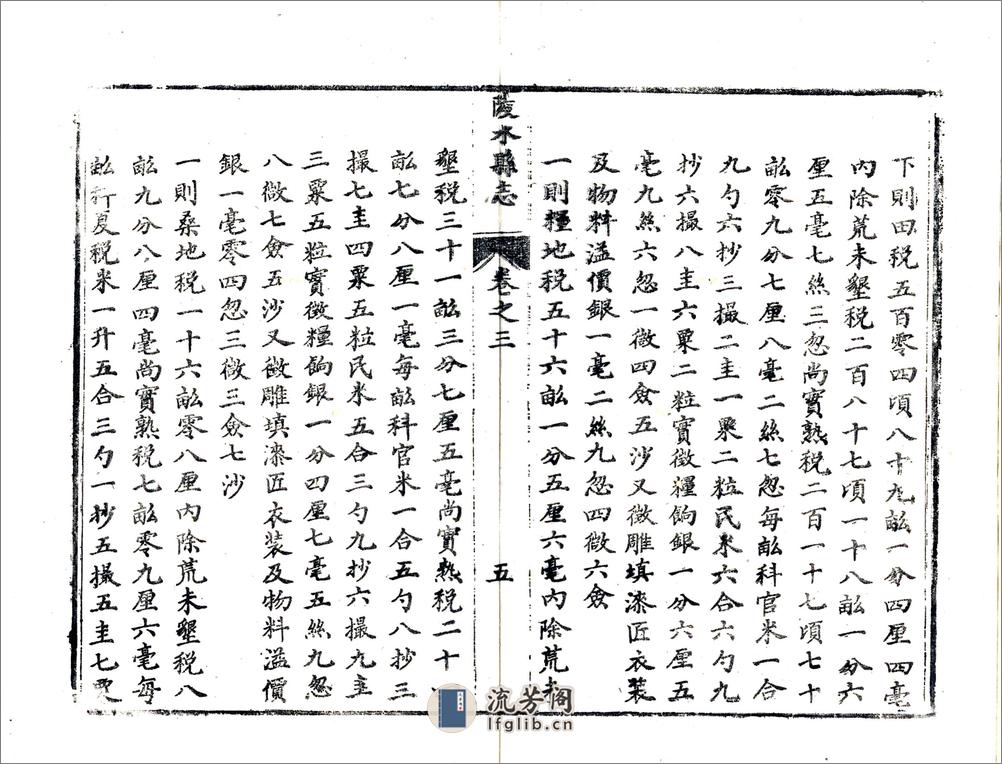 下則田税五百零四頃八十九畝一分四厘四毫
內除荒未墾税二百八十七頃一十八畝一分六
厘五毫七絲三忽尚實熟税二百一十七頃七十
畝零九分七厘八毫二絲七忽每畝科官米一合
九勺六抄三撮二圭一粟二粒民米六合六勺九
抄六撮八圭六粟二粒實徵糧餉銀一分六厘五
毫九絲六忽一微四僉五沙又徵雕填漆匠衣裝
及物料溢價銀一毫二絲九忽四微六僉
一則糧地税五十六畝一分五厘六毫內除荒未
陵水縣志
卷之三
五
墾税三十一畝三分七厘五毫尚實熟税二十
畝七分八厘一毫每畝科官米一合五勺八抄三
撮七圭四粟五粒民米五合三勺九抄六撮九圭
三粟五粒實徵糧餉銀一分四厘七毫五絲九忽
八微七僉五沙又徵雕填漆匠衣裝及物料溢價
銀一毫零四忽三微三僉七沙
一則桑地税一十六畝零八厘內除荒未墾税八
畝九分八厘四毫尚實熟税七畝零九厘六毫每
畝科夏税米一升五合三勺一抄五撮五圭七粟
流芳阁
lfglib.cn